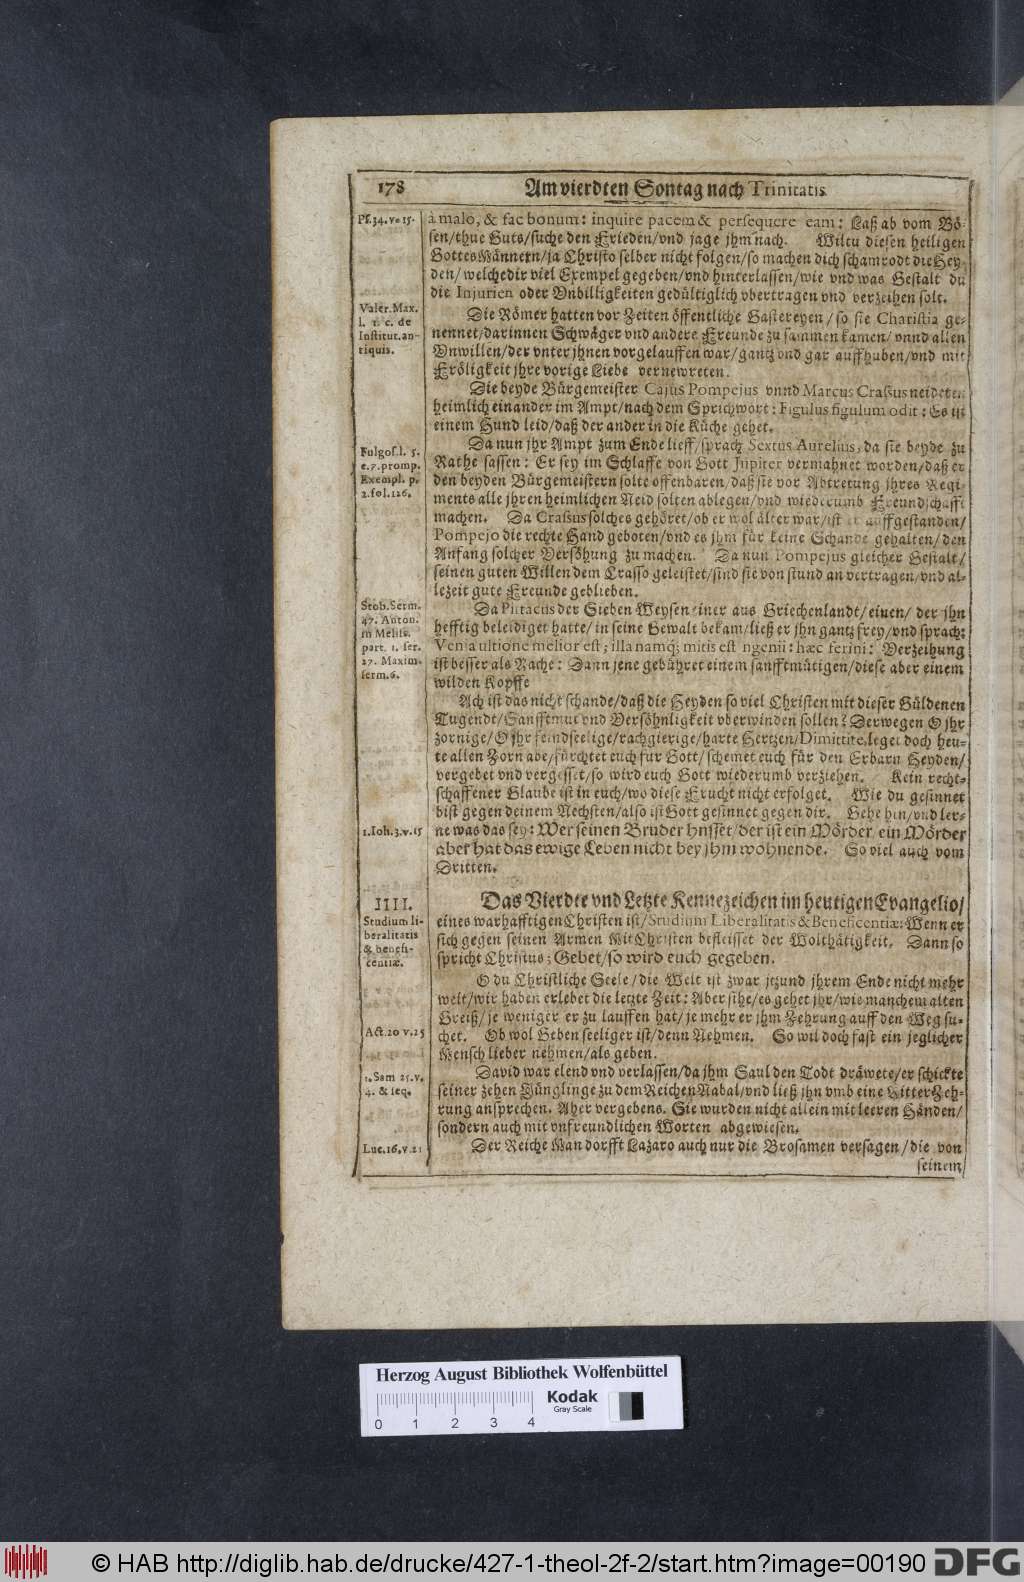 178
Am vierdten Sontag nach Trinitatis.
Ps. 34. v. 15.
à malo, & fac bonum: inquire pacem & persequere eam: Laß ab vom Bö-
sen/thue Guts/suche den Frieden/vnd jage jhm nach. Wiltu diesen heiligen
Gottes Männern/ja Christo selber nicht folgen/so machen dich schamrodt die Hey-
den/welche dir viel Exempel gegeben/vnd hinterlassen/wie vnd was Gestalt du
die Injurien oder Vnbilligkeiten gedültiglich vbertragen vnd verzeihen solt.
Valer. Max.
l. 1. c. de
Institut. an-
tiquis.
Die Römer hatten vor Zeiten öffentliche Gastereyen/so sie Charistia ge-
nennet/darinnen Schwäger vnd andere Freunde zusammen kamen/vnnd allen
Vnwillen/der vnter jhnen vorgelauffen war/gantz vnd gar auffhuben/vnd mit
Fröligkeit jhre vorige Liebe vernewreten.
Die beyde Bürgemeister Cajus Pompejus vnnd Marcus Crassus neideten
heimlich einander im Ampt/nach dem Sprichwort: Figulus figulum odit: Es ist
einem Hund leid/daß der ander in die Küche gehet.
Fulgos. l. 5.
c. 7. promp.
Exempl. p.
2. fol. 126.
Da nun jhr Ampt zum Ende lieff/sprach Sextus Aurelius, da sie beyde zu
Rathe sassen: Er sey im Schlaffe von Gott Jupiter vermahnet worden/daß er
den beyden Bürgemeistern solte offenbaren/daß sie vor Abtretung jhres Regi-
ments alle jhren heimlichen Neid solten ablegen/vnd wiederumb Freundschafft
machen. Da Crassus solches gehöret/ob er wol älter war/ist er auffgestanden/
Pompejo die rechte Hand geboten/vnd es jhm für keine Schande gehalten/den
Anfang solcher Versöhung zu machen. Da nun Pompejus gleicher Gestalt/
seinen guten Willen dem Crasso geleistet/sind sie von stund an vertragen/vnd al-
lezeit gute Freunde geblieben.
Stob. Serm.
47. Anton.
in Meliss.
part. 1. ser.
27. Maxim.
serm. 6.
Da Pittacus der Sieben Weysen einer aus Griechenlandt/einen/der jhn
hefftig beleidiget hatte/in seine Gewalt bekam/ließ er jhn gantz frey/vnd sprach:
Venia ultione melior est; illa namq; mitis est ingenii: hæc ferini: Verzeihung
ist besser als Rache: Dann jene gebühret einem sanfftmütigen/diese aber einem
wilden Kopffe
Ach ist das nicht schande/daß die Heyden so viel Christen mit dieser Güldenen
Tugendt/Sanfftmut vnd Versöhnligkeit vberwinden sollen? Derwegen O jhr
zornige/O jhr feindseelige/rachgierige/harte Hertzen/Dimittite, leget doch heu-
te allen Zorn abe/fürchtet euch für Gott/schemet euch für den Erbarn Heyden/
vergebet vnd vergesset/so wird euch Gott wiederumb verziehen. Kein recht-
schaffener Glaube ist in euch/wo diese Frucht nicht erfolget. Wie du gesinnet
bist gegen deinem Nechsten/also ist Gott gesinnet gegen dir. Gehe hin/vnd ler-
1. Ioh. 3. v. 15
ne was das sey: Wer seinen Bruder hasset/der ist ein Mörder, ein Mörder
aber hat das ewige Leben nicht bey jhm wohnende. So viel auch vom
Dritten.
IIII.
Studium li-
beralitatis
& benefi-
centiæ.
Das Vierdte vnd Letzte Kennezeichen im heutigen Evangelio/
eines warhafftigen Christen ist/Studium Liberalitatis & Beneficentiæ: Wenn er
sich gegen seinen Armen MitChristen befleisset der Wolthätigkeit. Dann so
spricht Christus: Gebet/so wird euch gegeben.
O du Christliche Seele/die Welt ist zwar jtzund jhrem Ende nicht mehr
weit/wir haben erlebet die letzte Zeit: Aber sihe/es gehet jhr/wie manchem alten
Greiß/je weniger er zu lauffen hat/je mehr er jhm Zehrung auff den Weg su-
Act. 20 v. 25
chet. Ob wol Geben seeliger ist/denn Nehmen. So wil doch fast ein jeglicher
Mensch lieber nehmen/als geben.
1. Sam 25. v.
4. & seq.
David war elend und verlassen/da jhm Saul den Todt dräwete/er schickte
seiner zehen Jünglinge zu dem Reichen Nabal/vnd ließ jhn vmb eine Ritter Zeh-
rung ansprechen. Aber vergebens. Sie wurden nicht allein mit leeren Händen/
sondern auch mit vnfreundlichen Worten abgewiesen.
Luc. 16. v. 21
Der Reiche Man dorfft Lazaro auch nur die Brosamen versagen/die von
seinem
Herzog August Bibliothek Wolfenbüttel
Kodak
Gray Scale
0 1 2 3 4
© HAB http://diglib.hab.de/drucke/427-1-theol-2f-2/start.htm?image=00190
DFG